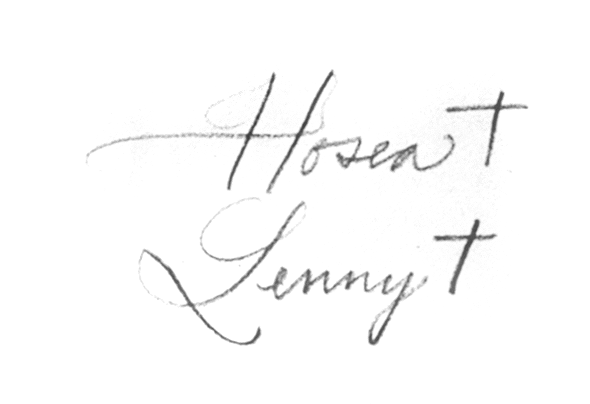 Hosea †
Lenny †